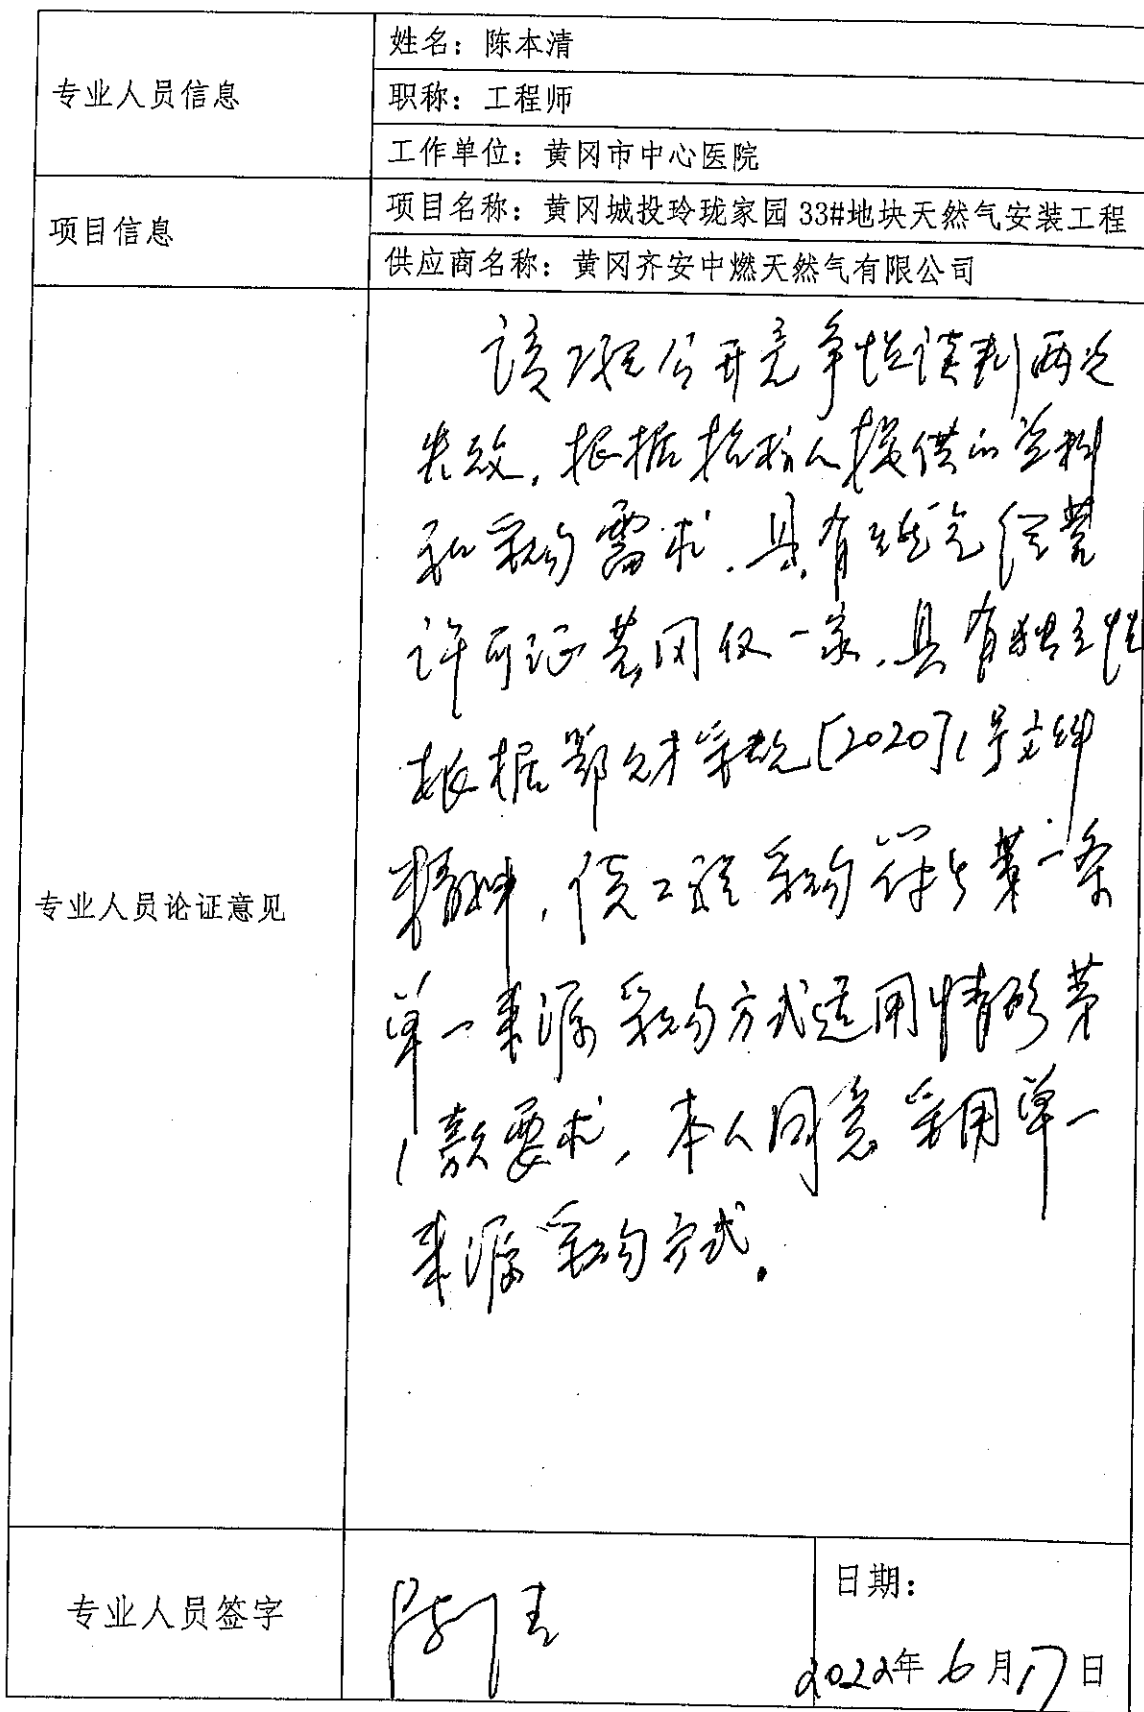 专业人员信息
姓名：陈本清
职称：工程师
工作单位：黄冈市中心医院
项目信息
项目名称：黄冈城投玲珑家园33#地块天然气安装工程
供应商名称：黄冈齐安中燃天然气有限公司
专业人员论证意见
该工程公开竞争性谈判两次
失败，根据招标人提供的资料
和采购需求，具有燃气经营
许可证黄冈仅一家，具有独立性
根据鄂财采[2020]1号文件
精神，工程采购符合第一条
单一来源采购方式适用情形第
1款要求，本人同意采用单一
来源采购方式。
专业人员签字
陈本清
日期：
2022年6月17日